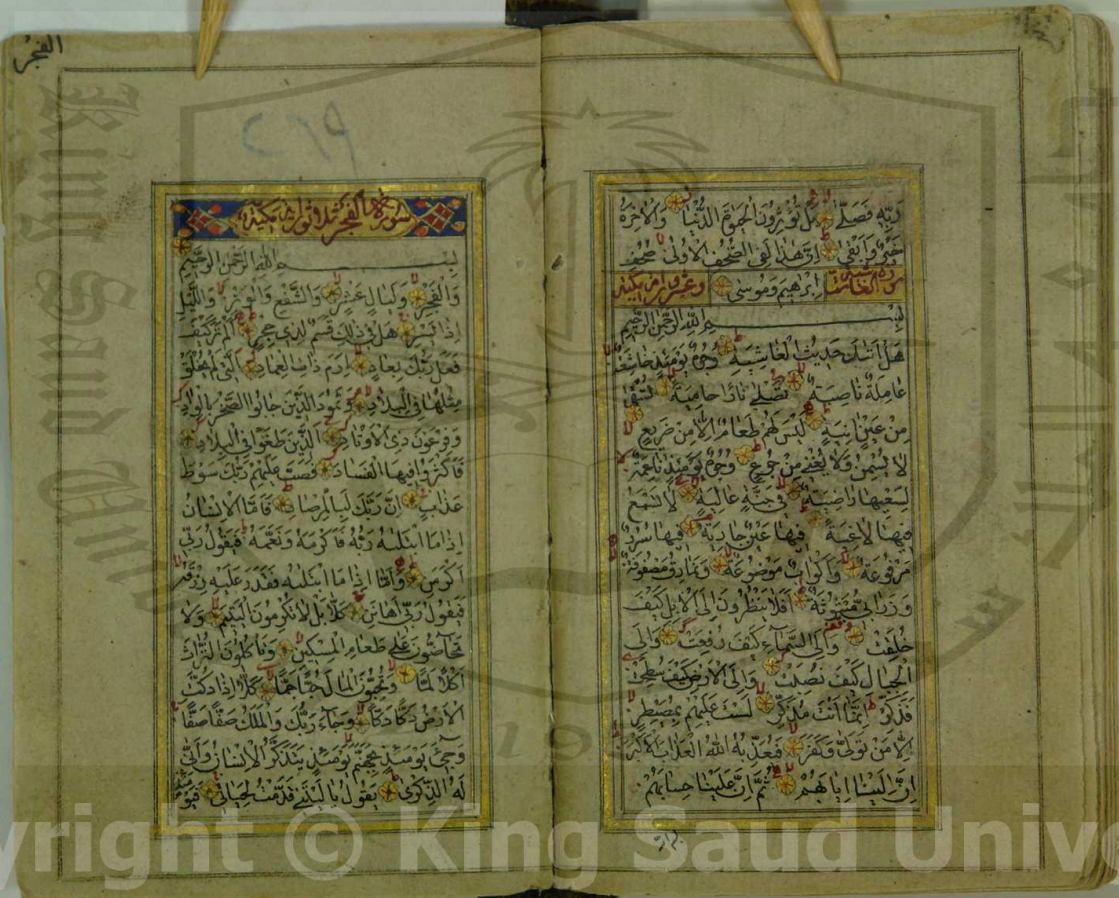 رَبِّهِ فَصَلَّى بَلْ تُؤْثِرُونَ الْحَيٰوةَ الدُّنْيَا وَالْاٰخِرَةُ
خَيْرٌ وَاَبْقٰى اِنَّ هٰذَا لَفِى الصُّحُفِ الْاُولٰى صُحُفِ
سورة الغاشية اِبْرٰهِيمَ وَمُوسٰى وعشرون اية مكية
بِسْمِ اللّٰهِ الرَّحْمٰنِ الرَّحِيمِ
هَلْ اَتٰيكَ حَدِيثُ الْغَاشِيَةِ وُجُوهٌ يَوْمَئِذٍ خَاشِعَةٌ
عَامِلَةٌ نَاصِبَةٌ تَصْلٰى نَارًا حَامِيَةً تُسْقٰى
مِنْ عَيْنٍ اٰنِيَةٍ لَيْسَ لَهُمْ طَعَامٌ اِلَّا مِنْ ضَرِيعٍ
لَا يُسْمِنُ وَلَا يُغْنِى مِنْ جُوعٍ وُجُوهٌ يَوْمَئِذٍ نَاعِمَةٌ
لِسَعْيِهَا رَاضِيَةٌ فِى جَنَّةٍ عَالِيَةٍ لَا تَسْمَعُ
فِيهَا لَاغِيَةً فِيهَا عَيْنٌ جَارِيَةٌ فِيهَا سُرُرٌ
مَرْفُوعَةٌ وَاَكْوَابٌ مَوْضُوعَةٌ وَنَمَارِقُ مَصْفُوفَةٌ
وَزَرَابِىُّ مَبْثُوثَةٌ اَفَلَا يَنْظُرُونَ اِلَى الْاِبِلِ كَيْفَ
خُلِقَتْ وَاِلَى السَّمَاءِ كَيْفَ رُفِعَتْ وَاِلَى
الْجِبَالِ كَيْفَ نُصِبَتْ وَاِلَى الْاَرْضِ كَيْفَ سُطِحَتْ
فَذَكِّرْ اِنَّمَا اَنْتَ مُذَكِّرٌ لَسْتَ عَلَيْهِمْ بِمُصَيْطِرٍ
اِلَّا مَنْ تَوَلّٰى وَكَفَرَ فَيُعَذِّبُهُ اللّٰهُ الْعَذَابَ الْاَكْبَرَ
اِنَّ اِلَيْنَا اِيَابَهُمْ ثُمَّ اِنَّ عَلَيْنَا حِسَابَهُمْ
الفجر
٢٦٩
سورة الفجر ثلاثون اية مكية
بِسْمِ اللّٰهِ الرَّحْمٰنِ الرَّحِيمِ
وَالْفَجْرِ وَلَيَالٍ عَشْرٍ وَالشَّفْعِ وَالْوَتْرِ وَاللَّيْلِ
اِذَا يَسْرِ هَلْ فِى ذٰلِكَ قَسَمٌ لِذِى حِجْرٍ اَلَمْ تَرَ كَيْفَ
فَعَلَ رَبُّكَ بِعَادٍ اِرَمَ ذَاتِ الْعِمَادِ الَّتِى لَمْ يُخْلَقْ
مِثْلُهَا فِى الْبِلَادِ وَثَمُودَ الَّذِينَ جَابُوا الصَّخْرَ بِالْوَادِ
وَفِرْعَوْنَ ذِى الْاَوْتَادِ الَّذِينَ طَغَوْا فِى الْبِلَادِ
فَاَكْثَرُوا فِيهَا الْفَسَادَ فَصَبَّ عَلَيْهِمْ رَبُّكَ سَوْطَ
عَذَابٍ اِنَّ رَبَّكَ لَبِالْمِرْصَادِ فَاَمَّا الْاِنْسَانُ
اِذَا مَا ابْتَلٰيهُ رَبُّهُ فَاَكْرَمَهُ وَنَعَّمَهُ فَيَقُولُ رَبِّى
اَكْرَمَنِ وَاَمَّا اِذَا مَا ابْتَلٰيهُ فَقَدَرَ عَلَيْهِ رِزْقَهُ
فَيَقُولُ رَبِّى اَهَانَنِ كَلَّا بَلْ لَا تُكْرِمُونَ الْيَتِيمَ وَلَا
تَحَاضُّونَ عَلٰى طَعَامِ الْمِسْكِينِ وَتَاْكُلُونَ التُّرَاثَ
اَكْلًا لَمًّا وَتُحِبُّونَ الْمَالَ حُبًّا جَمًّا كَلَّا اِذَا دُكَّتِ
الْاَرْضُ دَكًّا دَكًّا وَجَاءَ رَبُّكَ وَالْمَلَكُ صَفًّا صَفًّا
وَجِىءَ يَوْمَئِذٍ بِجَهَنَّمَ يَوْمَئِذٍ يَتَذَكَّرُ الْاِنْسَانُ وَاَنّٰى
لَهُ الذِّكْرٰى يَقُولُ يَا لَيْتَنِى قَدَّمْتُ لِحَيَاتِى فَيَوْمَئِذٍ
Copyright © King Saud University